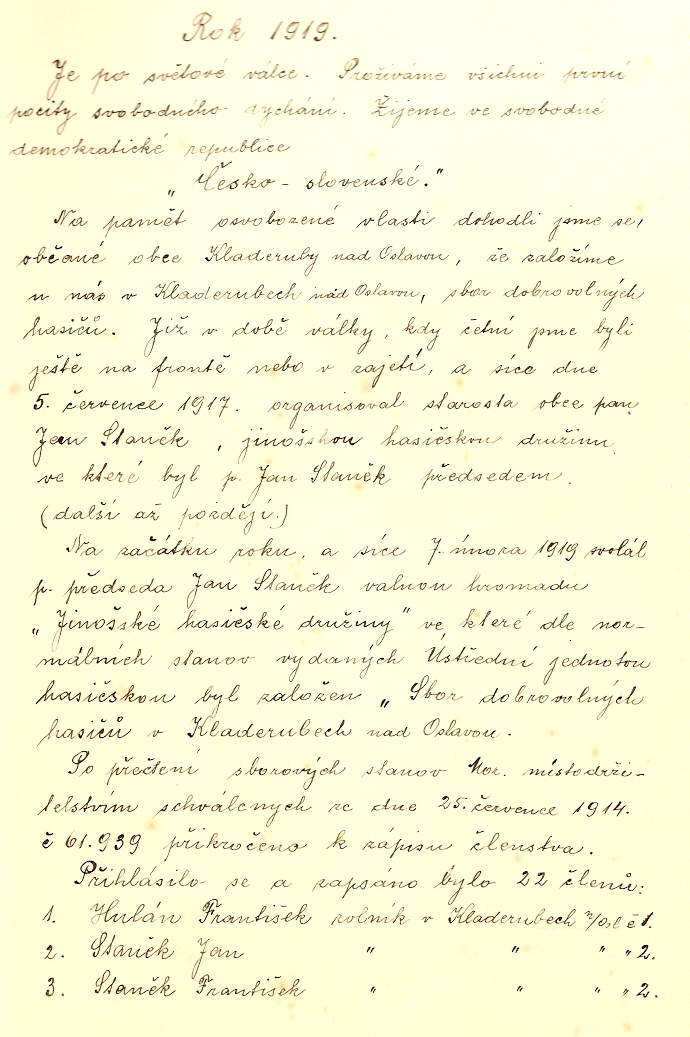 Rok 1919.
Je po světové válce. Prožíváme všichni první
pocity svobodného dýchání. Žijeme ve svobodné
demokratické republice
„Česko - slovenské."
Na pamět osvobozené vlasti dohodli jsme se,
občané obce Kladeruby nad Oslavou, že založíme
u nás v Kladerubech nad Oslavou, sbor dobrovolných
hasičů. Již v době války, kdy četní jsme byli
ještě na frontě nebo v zajetí, a sice dne
5. července 1917. organisoval starosta obce pan
Jan Staněk, jinošskou hasičskou družinu
ve které byl p. Jan Staněk předsedem.
(další až později.)
Na začátku roku, a sice 7. února 1919 svolál
p. předseda Jan Staněk valnou hromadu
„Jinošské hasičské družiny" ve které dle nor-
málních stanov vydaných Ústřední jednotou
hasičskou byl založen „Sbor dobrovolných
hasičů v Kladerubech nad Oslavou.
Po přečtení sborových stanov Mor. místodrži-
telstvím schválených ze dne 25. července 1914.
č 61.939 přikročeno k zápisu členstva.
Přihlásilo se a zapsáno bylo 22 členů:
1. Hulán František rolník v Kladerubech n/Osl č 1.
2. Staněk Jan " " " " 2.
3. Staněk František " " " " 2.